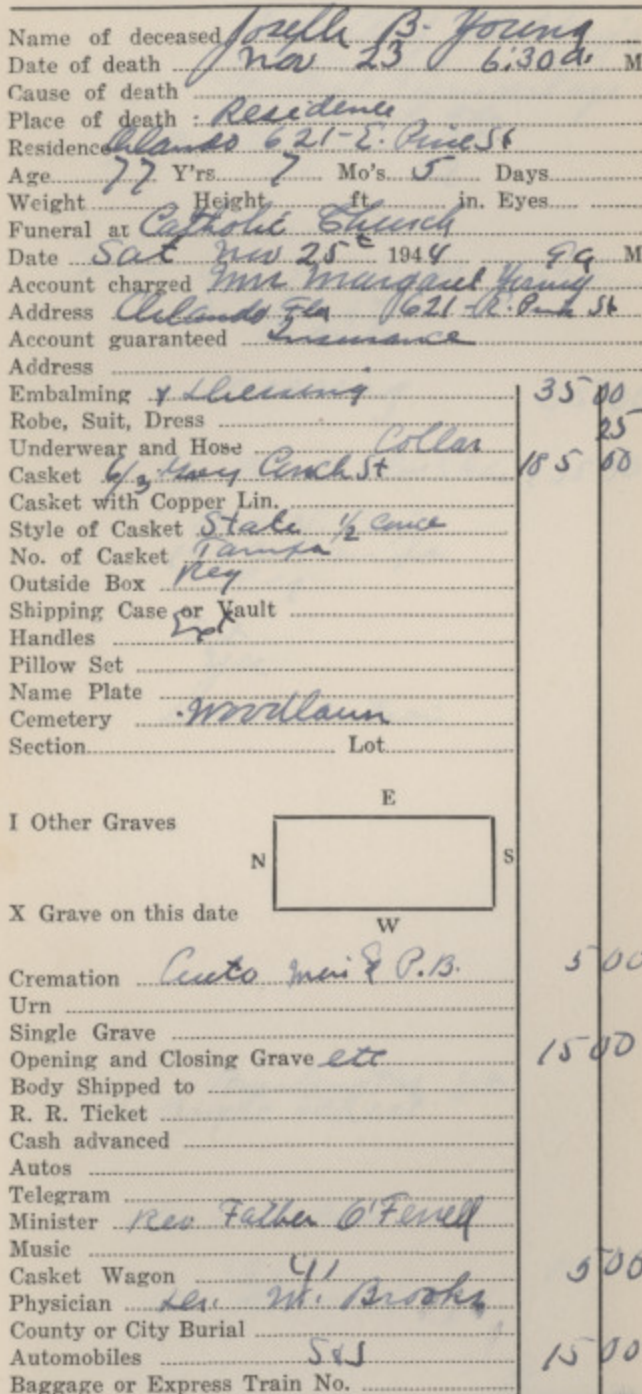 Name of deceased Joseph B. Young
Date of death Nov 23 6:30 a. M
Cause of death
Place of death : Residence
Residence Orlando 621-E. Pine St
Age 77 Y'rs. 7 Mo's 5 Days
Weight Height ft. in. Eyes
Funeral at Catholic Church
Date Sat Nov 25 1944 9 a M
Account charged Mrs Margaret Young
Address Orlando Fla 621-E. Pine St
Account guaranteed Insurance
Address
Embalming & Dressing 35 00
Robe, Suit, Dress 25
Underwear and Hose Collar
Casket 6/3 Grey St 185 00
Casket with Copper Lin.
Style of Casket State 1/2
No. of Casket Tampa
Outside Box
Shipping Case or Vault
Handles
Pillow Set
Name Plate
Cemetery Woodlawn
Section Lot
E
I Other Graves
N S
X Grave on this date
W
Cremation Auto & P.B. 5 00
Urn
Single Grave
Opening and Closing Grave etc 15 00
Body Shipped to
R. R. Ticket
Cash advanced
Autos
Telegram
Minister Rev Father
Music
Casket Wagon 5 00
Physician Brooks
County or City Burial
Automobiles 15 00
Baggage or Express Train No.